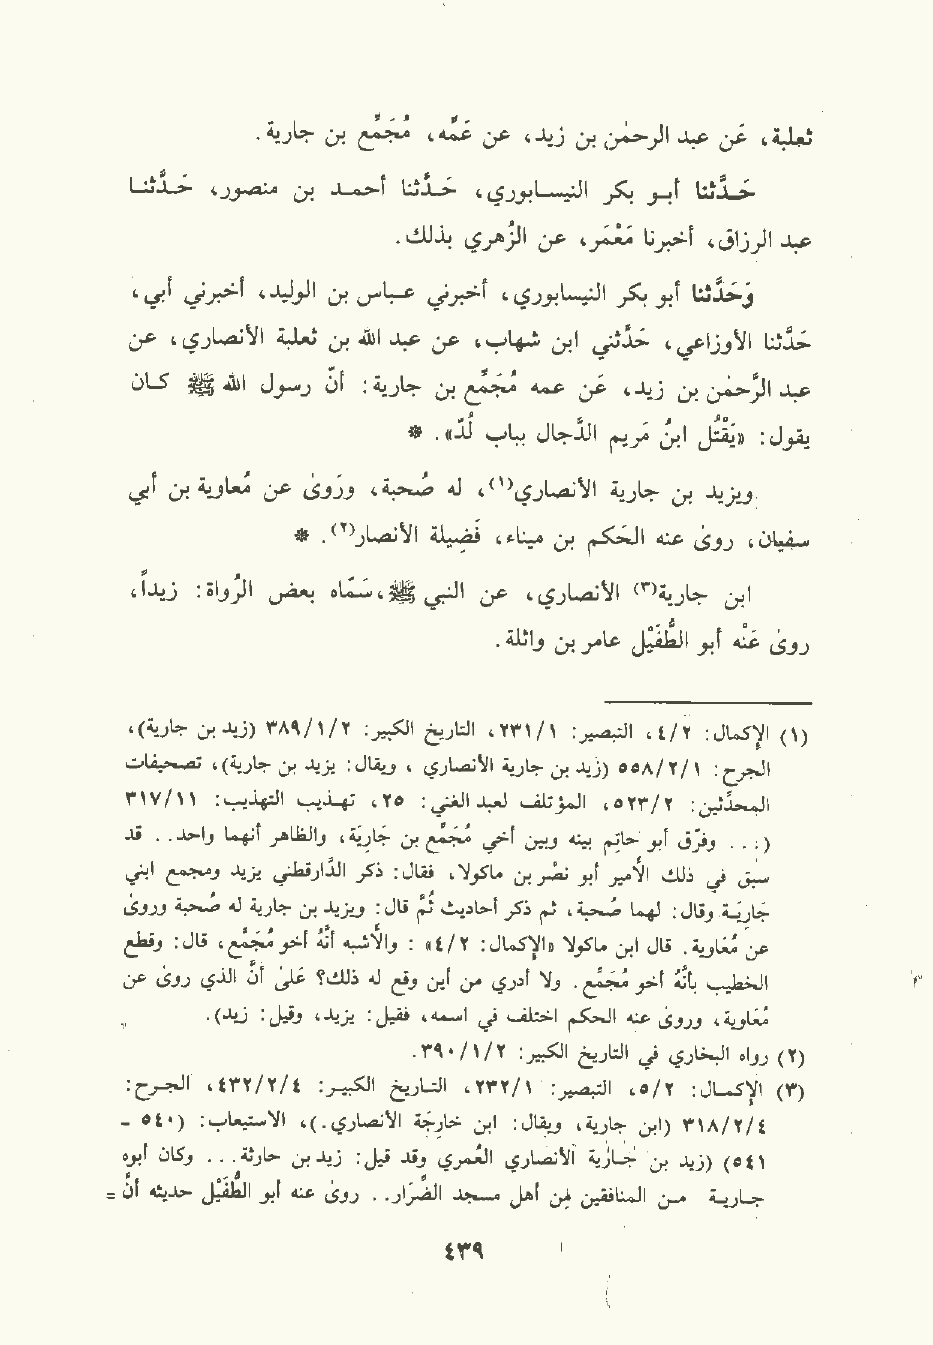 ثعلبة، عَن عبد الرحمٰن بن زيد، عن عَمِّه، مُجَمِّع بن جارية.
حَـدَّثنا أبـو بكر النيسابوري، حَدَّثنا أحمد بن منصور، حَدَّثنا
عبد الرزاق، أخبرنا مَعْمَر، عن الزُهري بذلك.
وَحَدَّثنا أبو بكر النيسابوري، أخبرني عباس بن الوليد، أخبرني أبي،
حَدَّثنا الأوزاعي، حَدَّثني ابن شهاب، عن عبد الله بن ثعلبة الأنصاري، عن
عبد الرَّحمٰن بن زيد، عَن عمه مُجَمِّع بن جارية: أن رسول الله ﷺ كان
يقول: «يَقْتُل ابنُ مَريم الدَّجال بباب لُدّ». *
ويزيد بن جارية الأنصاري(١)، له صُحبة، وَرَوىٰ عن مُعاوية بن أبي
سفيان، روىٰ عنه الحَكم بن ميناء، فَضِيلة الأنصار(٢). *
ابن جارية(٣) الأنصاري، عن النبي ﷺ، سَمَّاه بعض الرُواة: زيداً،
روىٰ عَنْه أبو الطُّفَيْل عامر بن واثلة.
(١) الإكمال: ٤/٢، التبصير: ٢٣١/١، التاريخ الكبير: ٣٨٩/١/٢ (زيد بن جارية)،
الجرح: ٥٥٨/٢/١ (زيد بن جارية الأنصاري، ويقال: يزيد بن جارية)، تصحيفات
المحدِّثين: ٥٢٣/٢، المؤتلف لعبد الغني: ٢٥، تهذيب التهذيب: ٣١٧/١١
(... وفرّق أبو حاتِم بينه وبين أخي مُجَمِّع بن جَارِيَة، والظاهر أنهما واحد.. قد
سبق في ذلك الأمير أبو نصْر بن ماكولا، فقال: ذكر الدَّارقطني يزيد ومجمع ابني
جَارِيَـة وقال: لهما صُحبة، ثم ذكر أحاديث ثُمَّ قال: ويزيد بن جارية له صُحبة وروىٰ
عن مُعاوية. قال ابن ماكولا «الإكمال: ٤/٢» : والأشبه أنَّهُ أخو مُجَمِّع، قال: وقطع
الخطيب بأنَّهُ أخو مُجَمِّع. ولا أدري من أين وقع له ذلك؟ عَلىٰ أنَّ الذي روىٰ عن
مُعاوية، وروىٰ عنه الحكم اختلف في اسمه، فقيل: يزيد، وقيل: زيد).
(٢) رواه البخاري في التاريخ الكبير: ٣٩٠/١/٢.
(٣) الإكمـال: ٥/٢، التبصير: ٢٣٢/١، التاريخ الكبير: ٤٣٢/٢/٤، الجرح:
٣١٨/٢/٤ (ابن جارية، ويقال: ابن خارِجة الأنصاري.)، الاستيعاب: (٥٤٠ ـ
٥٤١) (زيد بن جَارية الأنصاري العُمري وقد قيل: زيد بن حارثة... وكان أبوه
جارية من المنافقين مِن أهل مسجد الضِّرَار.. روىٰ عنه أبو الطُّفَيْل حديثه أنَّ =
٤٣٩